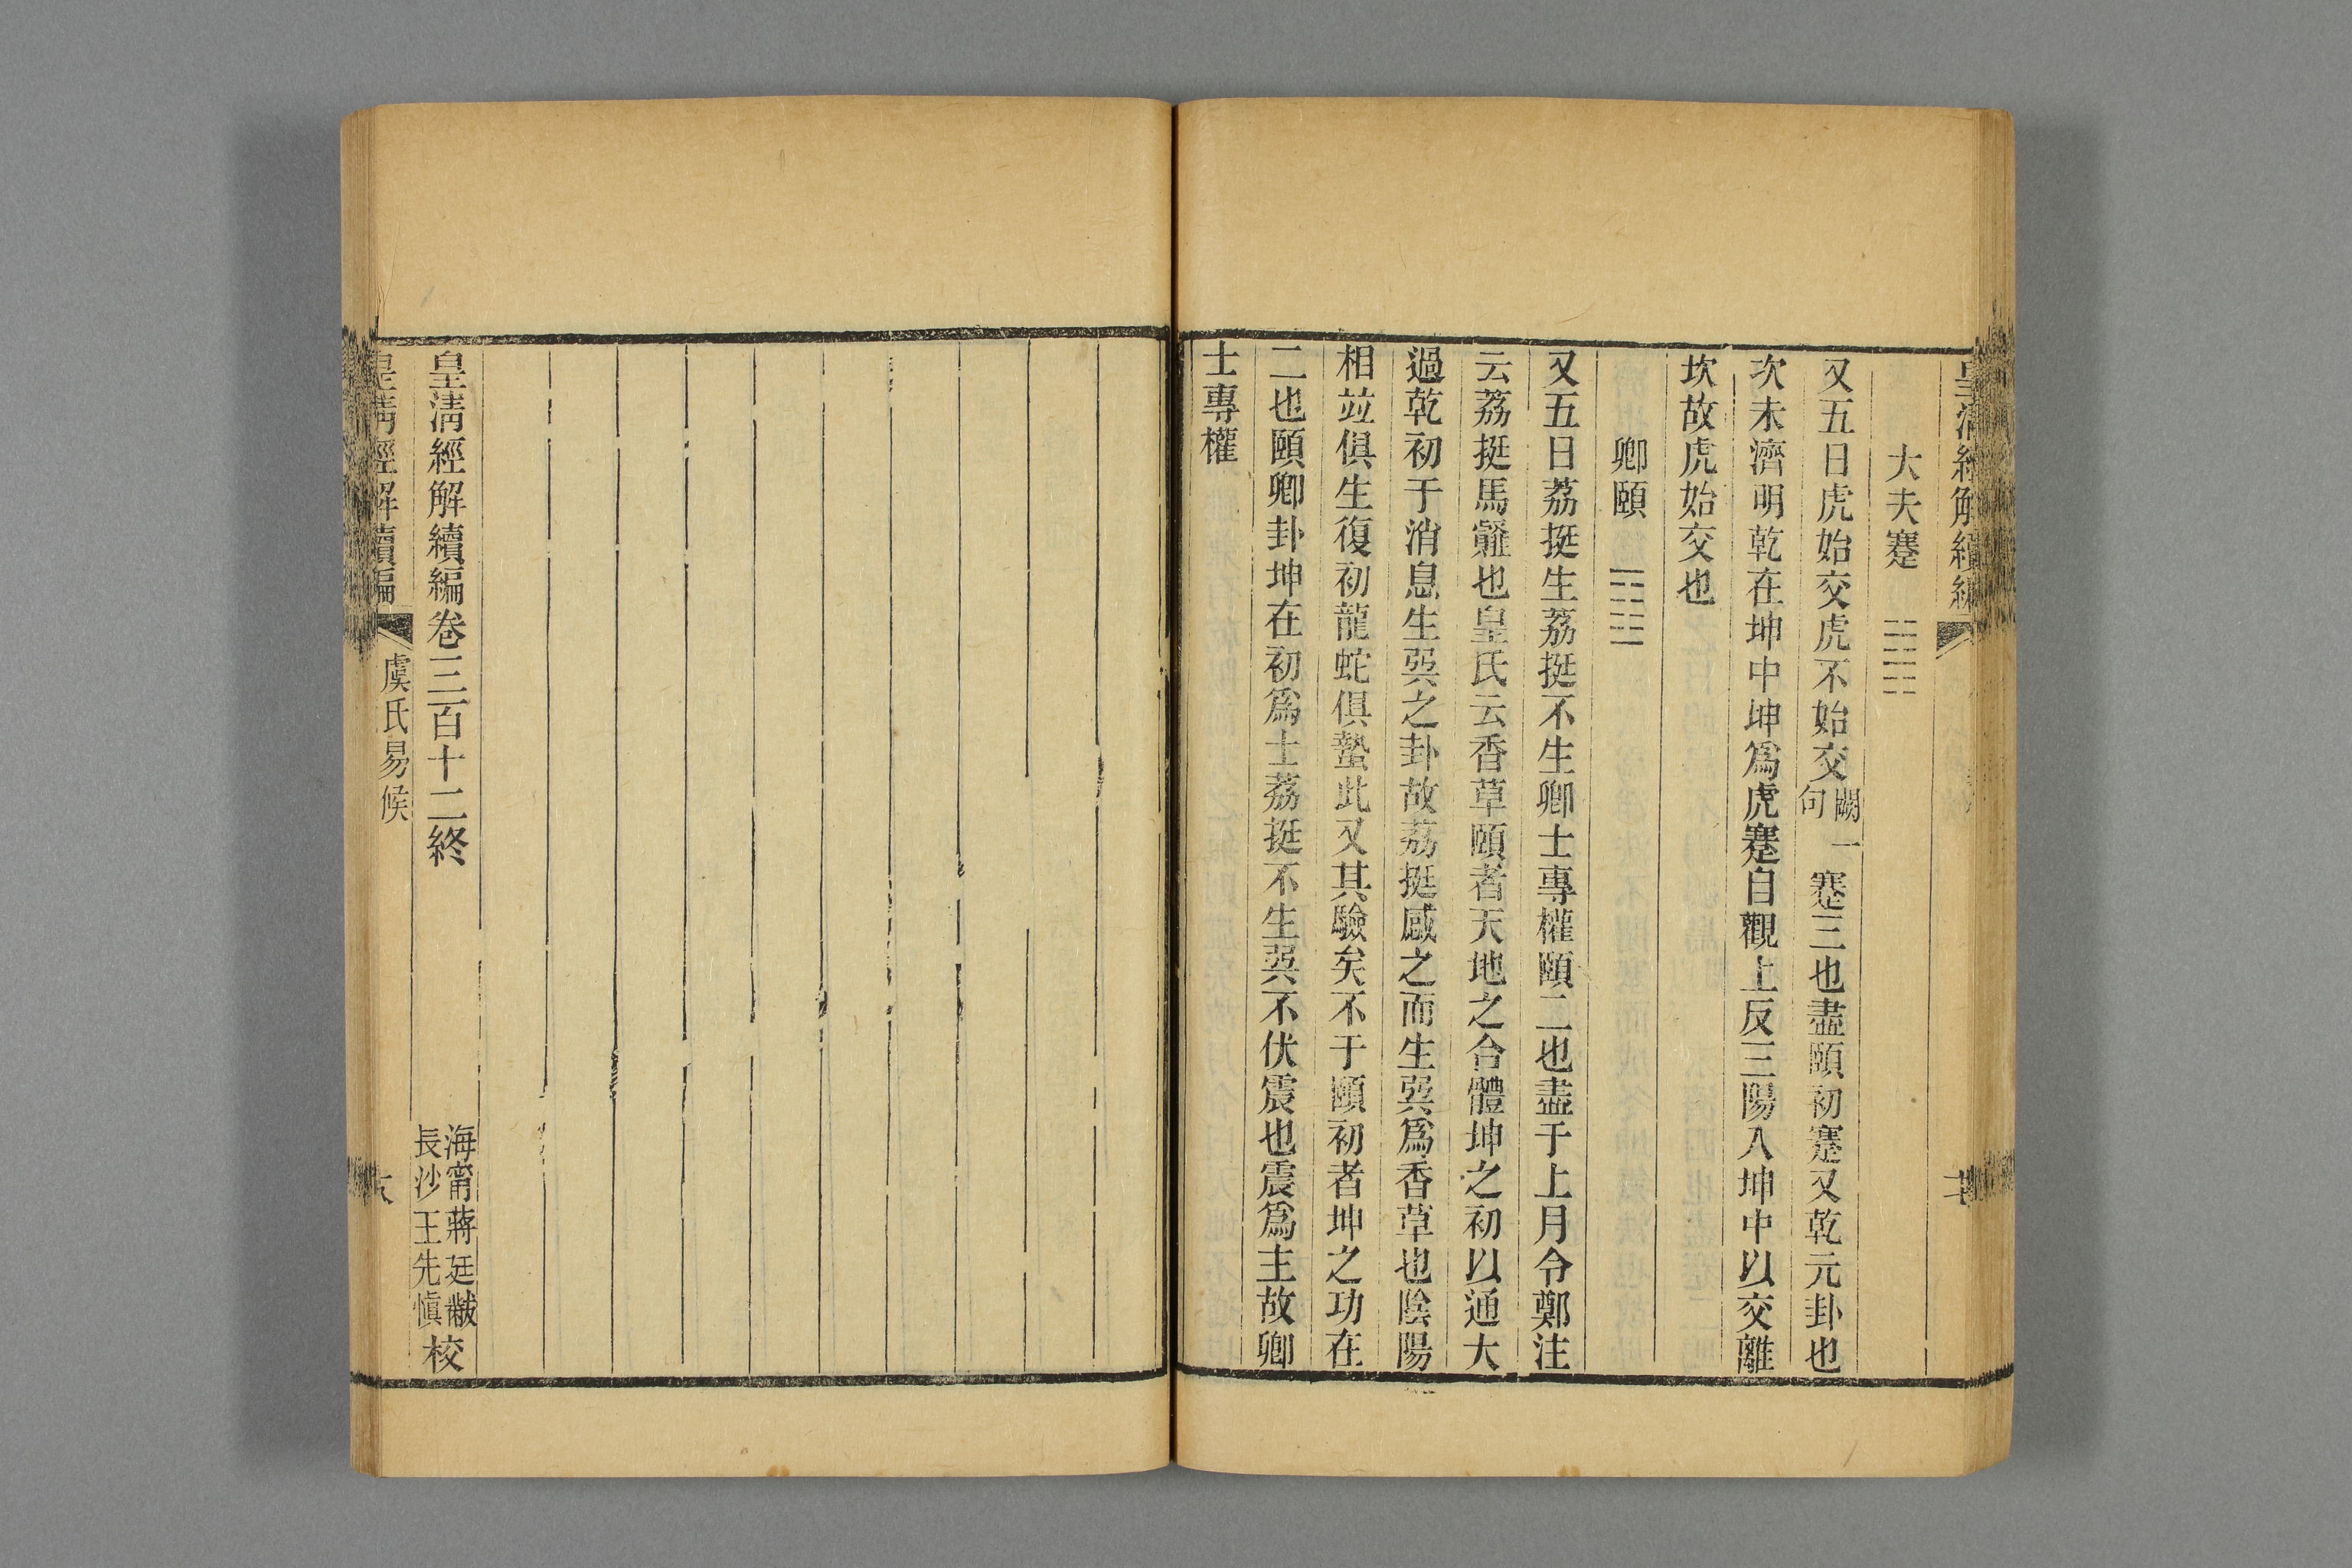 大夫蹇 ䷦
又五日虎始交虎不始交闕一句蹇三也盡頤初蹇又乾元卦也
次未濟明乾在坤中坤爲虎蹇自觀上反三陽入坤中以交離
坎故虎始交也
卿頤 ䷚
又五日荔挺生荔挺不生卿士專權頤二也盡于上月令鄭注
云荔挺馬䪥也皇氏云香草頤者天地之合體坤之初以通大
過乾初于消息生巽之卦故荔挺感之而生巽爲香草也陰陽
相竝俱生復初龍蛇俱蟄此又其驗矣不于頤初者坤之功在
二也頤卿卦坤在初爲士荔挺不生巽不伏震也震爲主故卿
士專權
皇清經解續編卷三百十二終
海甯蔣廷黻
長沙王先愼
校
皇清經解續編 虞氏易候